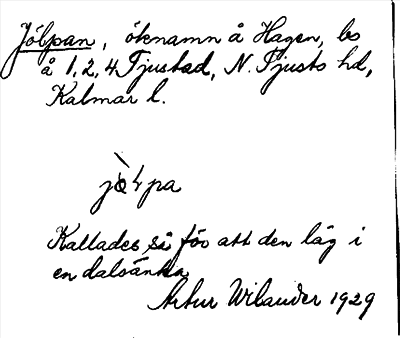 Jölpan, öknamn å Hagen, ls
å 1, 2, 4 Tjustad, N. Tjusts hd,
Kalmar l.
Kallades så för att den låg i
en dalsänka
Artur Wilander 1929